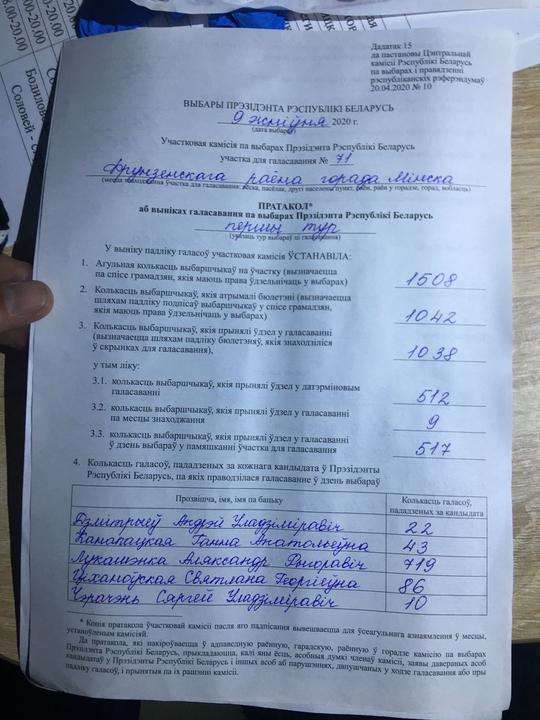 Дадатак 15
да пастановы Цэнтральнай
камісіі Рэспублікі Беларусь
па выбарах і правядзенні
рэспубліканскіх рэферэндумаў
20.04.2020 № 10
ВЫБАРЫ ПРЭЗІДЭНТА РЭСПУБЛІКІ БЕЛАРУСЬ
9 жніўня 2020 г.
(дата выбараў)
Участковая камісія па выбарах Прэзідэнта Рэспублікі Беларусь
участка для галасавання № 71
Фрунзенскага раёна горада Мінска
(месца знаходжання ўчастка для галасавання: вёска, пасёлак, другі населены пункт, раён, раён у горадзе, горад, вобласць)
ПРАТАКОЛ*
аб выніках галасавання па выбарах Прэзідэнта Рэспублікі Беларусь
першы тур
(указаць тур выбараў ці галасавання)
У выніку падліку галасоў участковая камісія ЎСТАНАВІЛА:
1. Агульная колькасць выбаршчыкаў на ўчастку (вызначаецца
па спісе грамадзян, якія маюць права ўдзельнічаць у выбарах) 1508
2. Колькасць выбаршчыкаў, якія атрымалі бюлетэні (вызначаецца
шляхам падліку подпісаў выбаршчыкаў у спісе грамадзян,
якія маюць права ўдзельнічаць у выбарах) 1042
3. Колькасць выбаршчыкаў, якія прынялі ўдзел у галасаванні
(вызначаецца шляхам падліку бюлетэняў, якія знаходзіліся
ў скрынках для галасавання), 1038
у тым ліку:
3.1. колькасць выбаршчыкаў, якія прынялі ўдзел у датэрміновым
галасаванні 512
3.2. колькасць выбаршчыкаў, якія прынялі ўдзел у галасаванні
па месцы знаходжання 9
3.3. колькасць выбаршчыкаў, якія прынялі ўдзел у галасаванні
ў дзень выбараў у памяшканні ўчастка для галасавання 517
4. Колькасць галасоў, пададзеных за кожнага кандыдата ў Прэзідэнты
Рэспублікі Беларусь, па якіх праводзілася галасаванне ў дзень выбараў
Прозвішча, імя, імя па бацьку Колькасць галасоў,
пададзеных за кандыдата
Дзмітрыеў Андрэй Уладзіміравіч 22
Канапацкая Ганна Анатольеўна 43
Лукашэнка Аляксандр Рыгоравіч 719
Ціханоўская Святлана Георгіеўна 86
Чэрачэнь Сяргей Уладзіміравіч 10
* Копія пратакола ўчастковай камісіі пасля яго падпісання вывешваецца для ўсеагульнага азнаямлення ў месцы,
устаноўленым камісіяй.
Да пратакола, які накіроўваецца ў адпаведную раённую, гарадскую, раённую ў горадзе камісію па выбарах
Прэзідэнта Рэспублікі Беларусь, прыкладаюцца, калі яны ёсць, асобныя думкі членаў камісіі, заявы давераных асоб
кандыдатаў у Прэзідэнты Рэспублікі Беларусь і іншых асоб аб парушэннях, дапушчаных у ходзе галасавання або пры
падліку галасоў, і прынятыя па іх рашэнні камісіі.